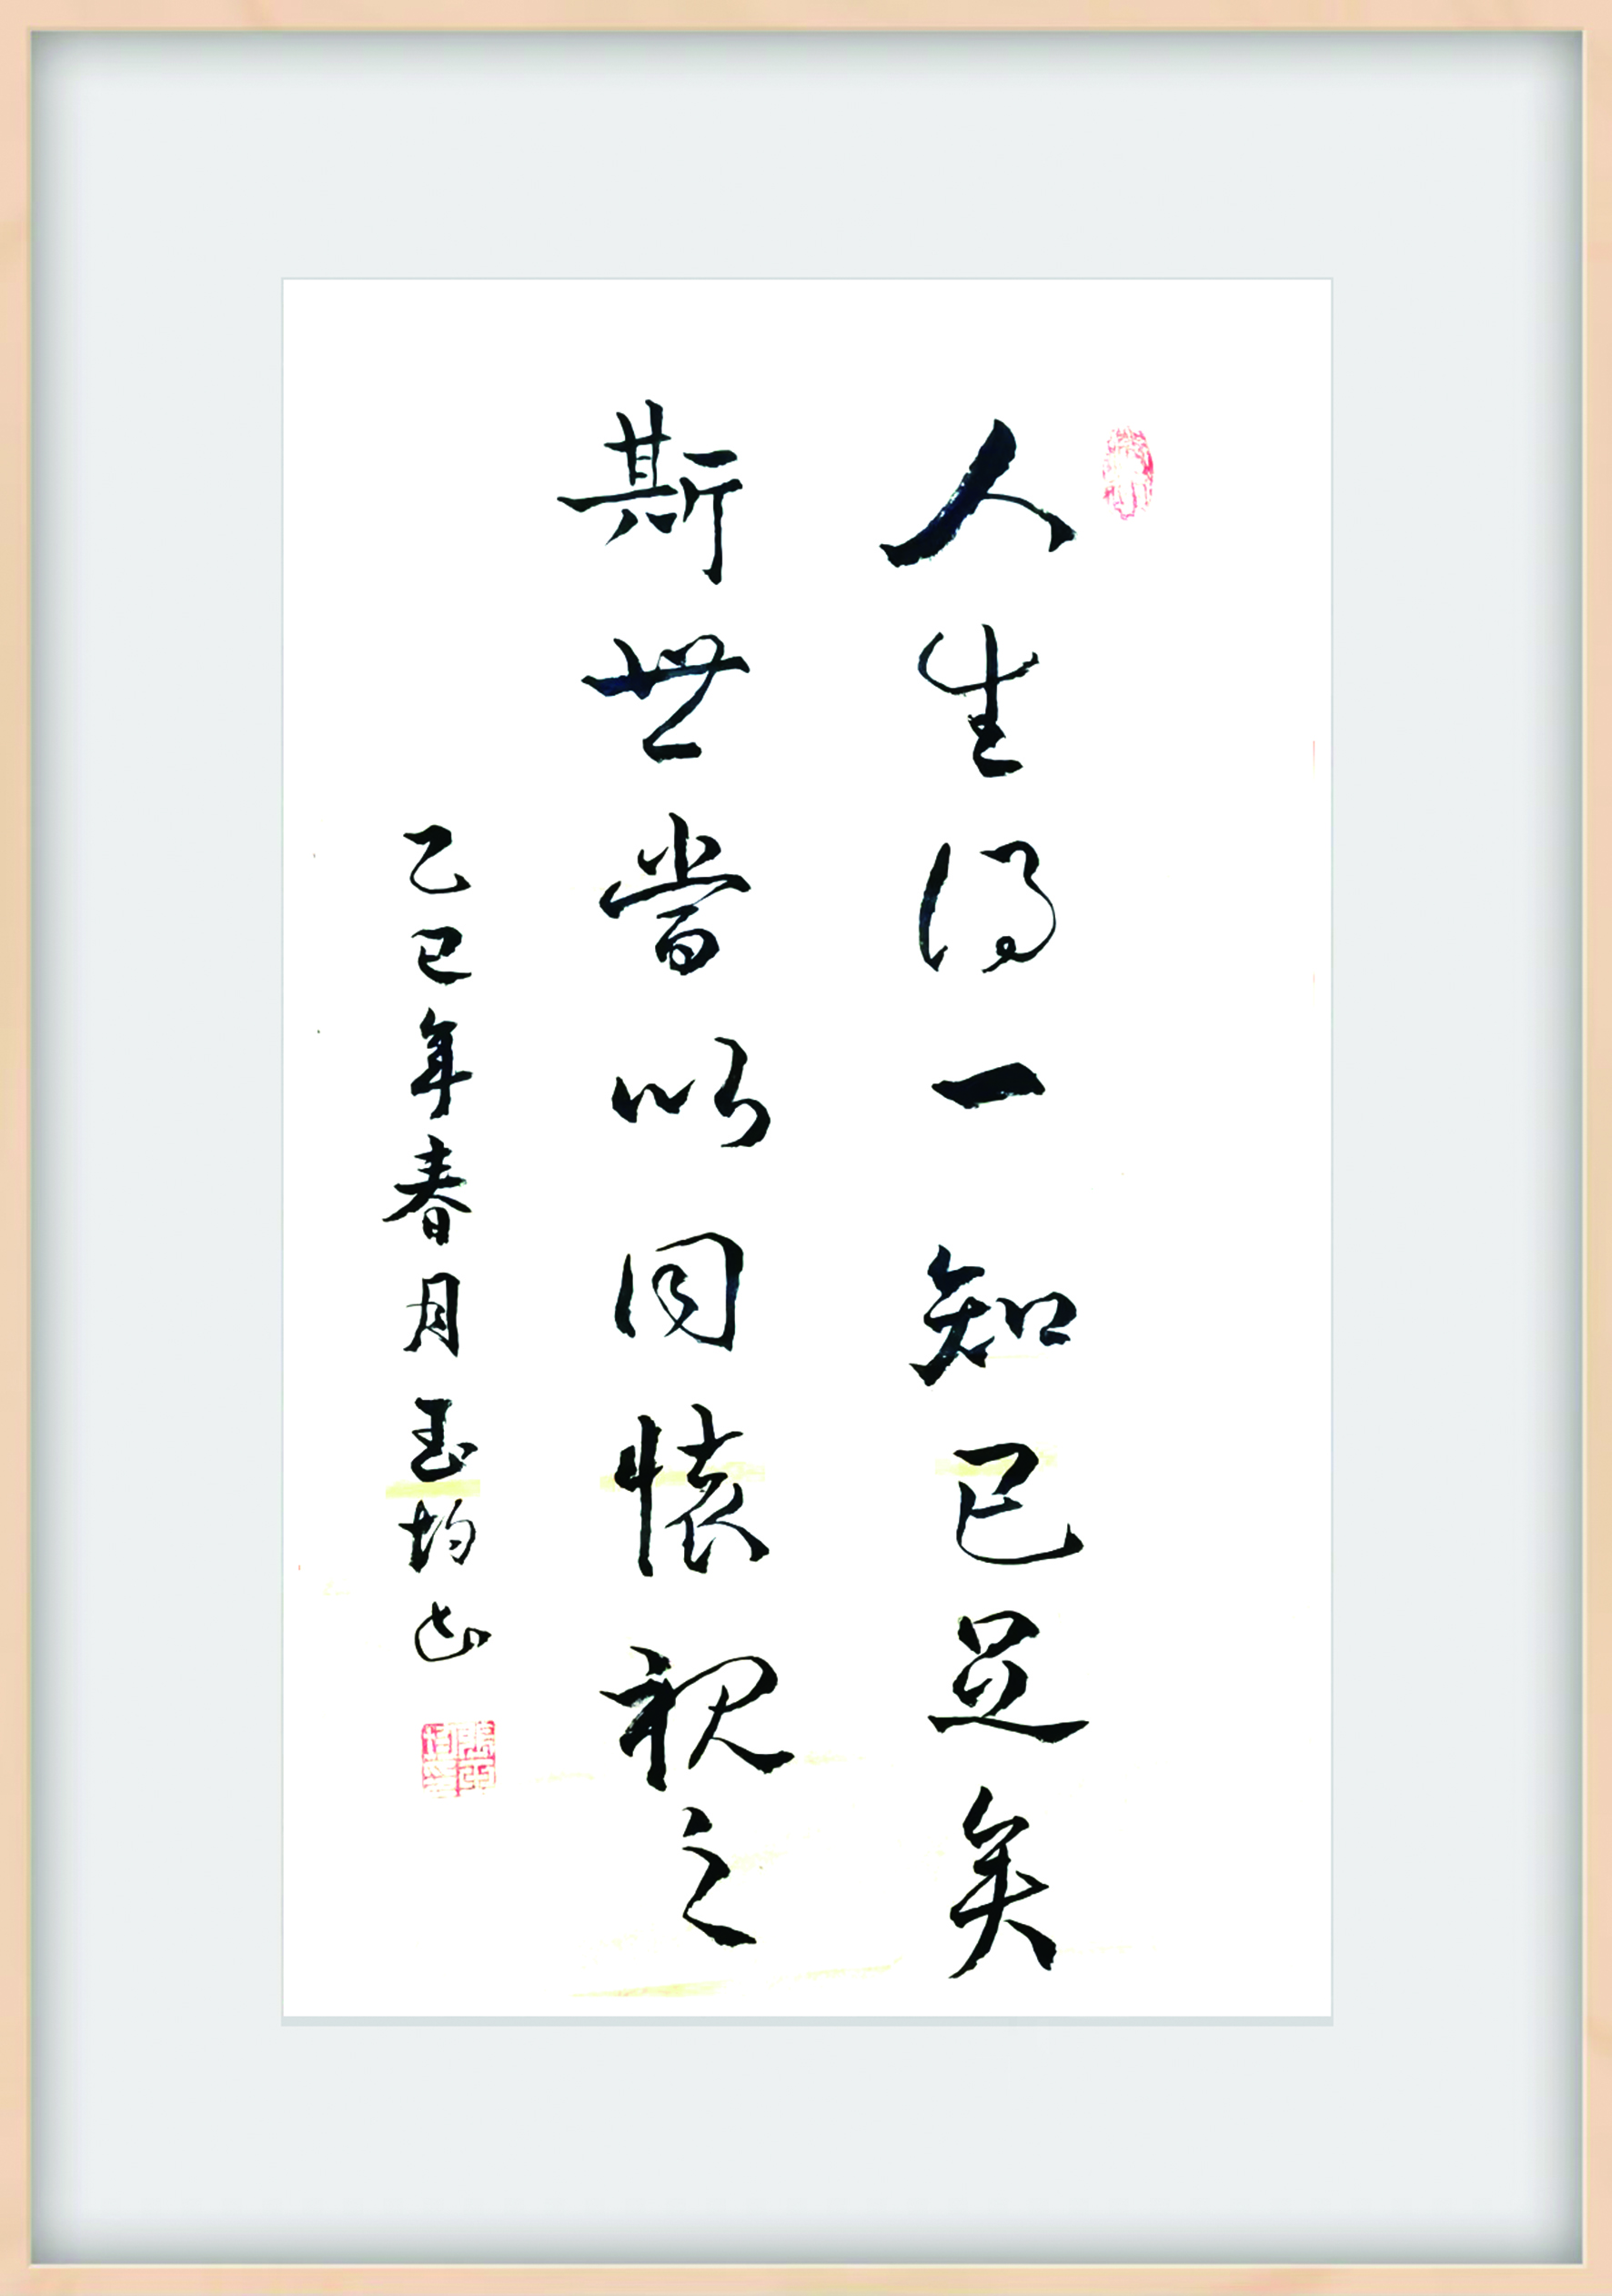 人生得一知己足矣
斯世當以同懷視之
乙巳年春月玉均书